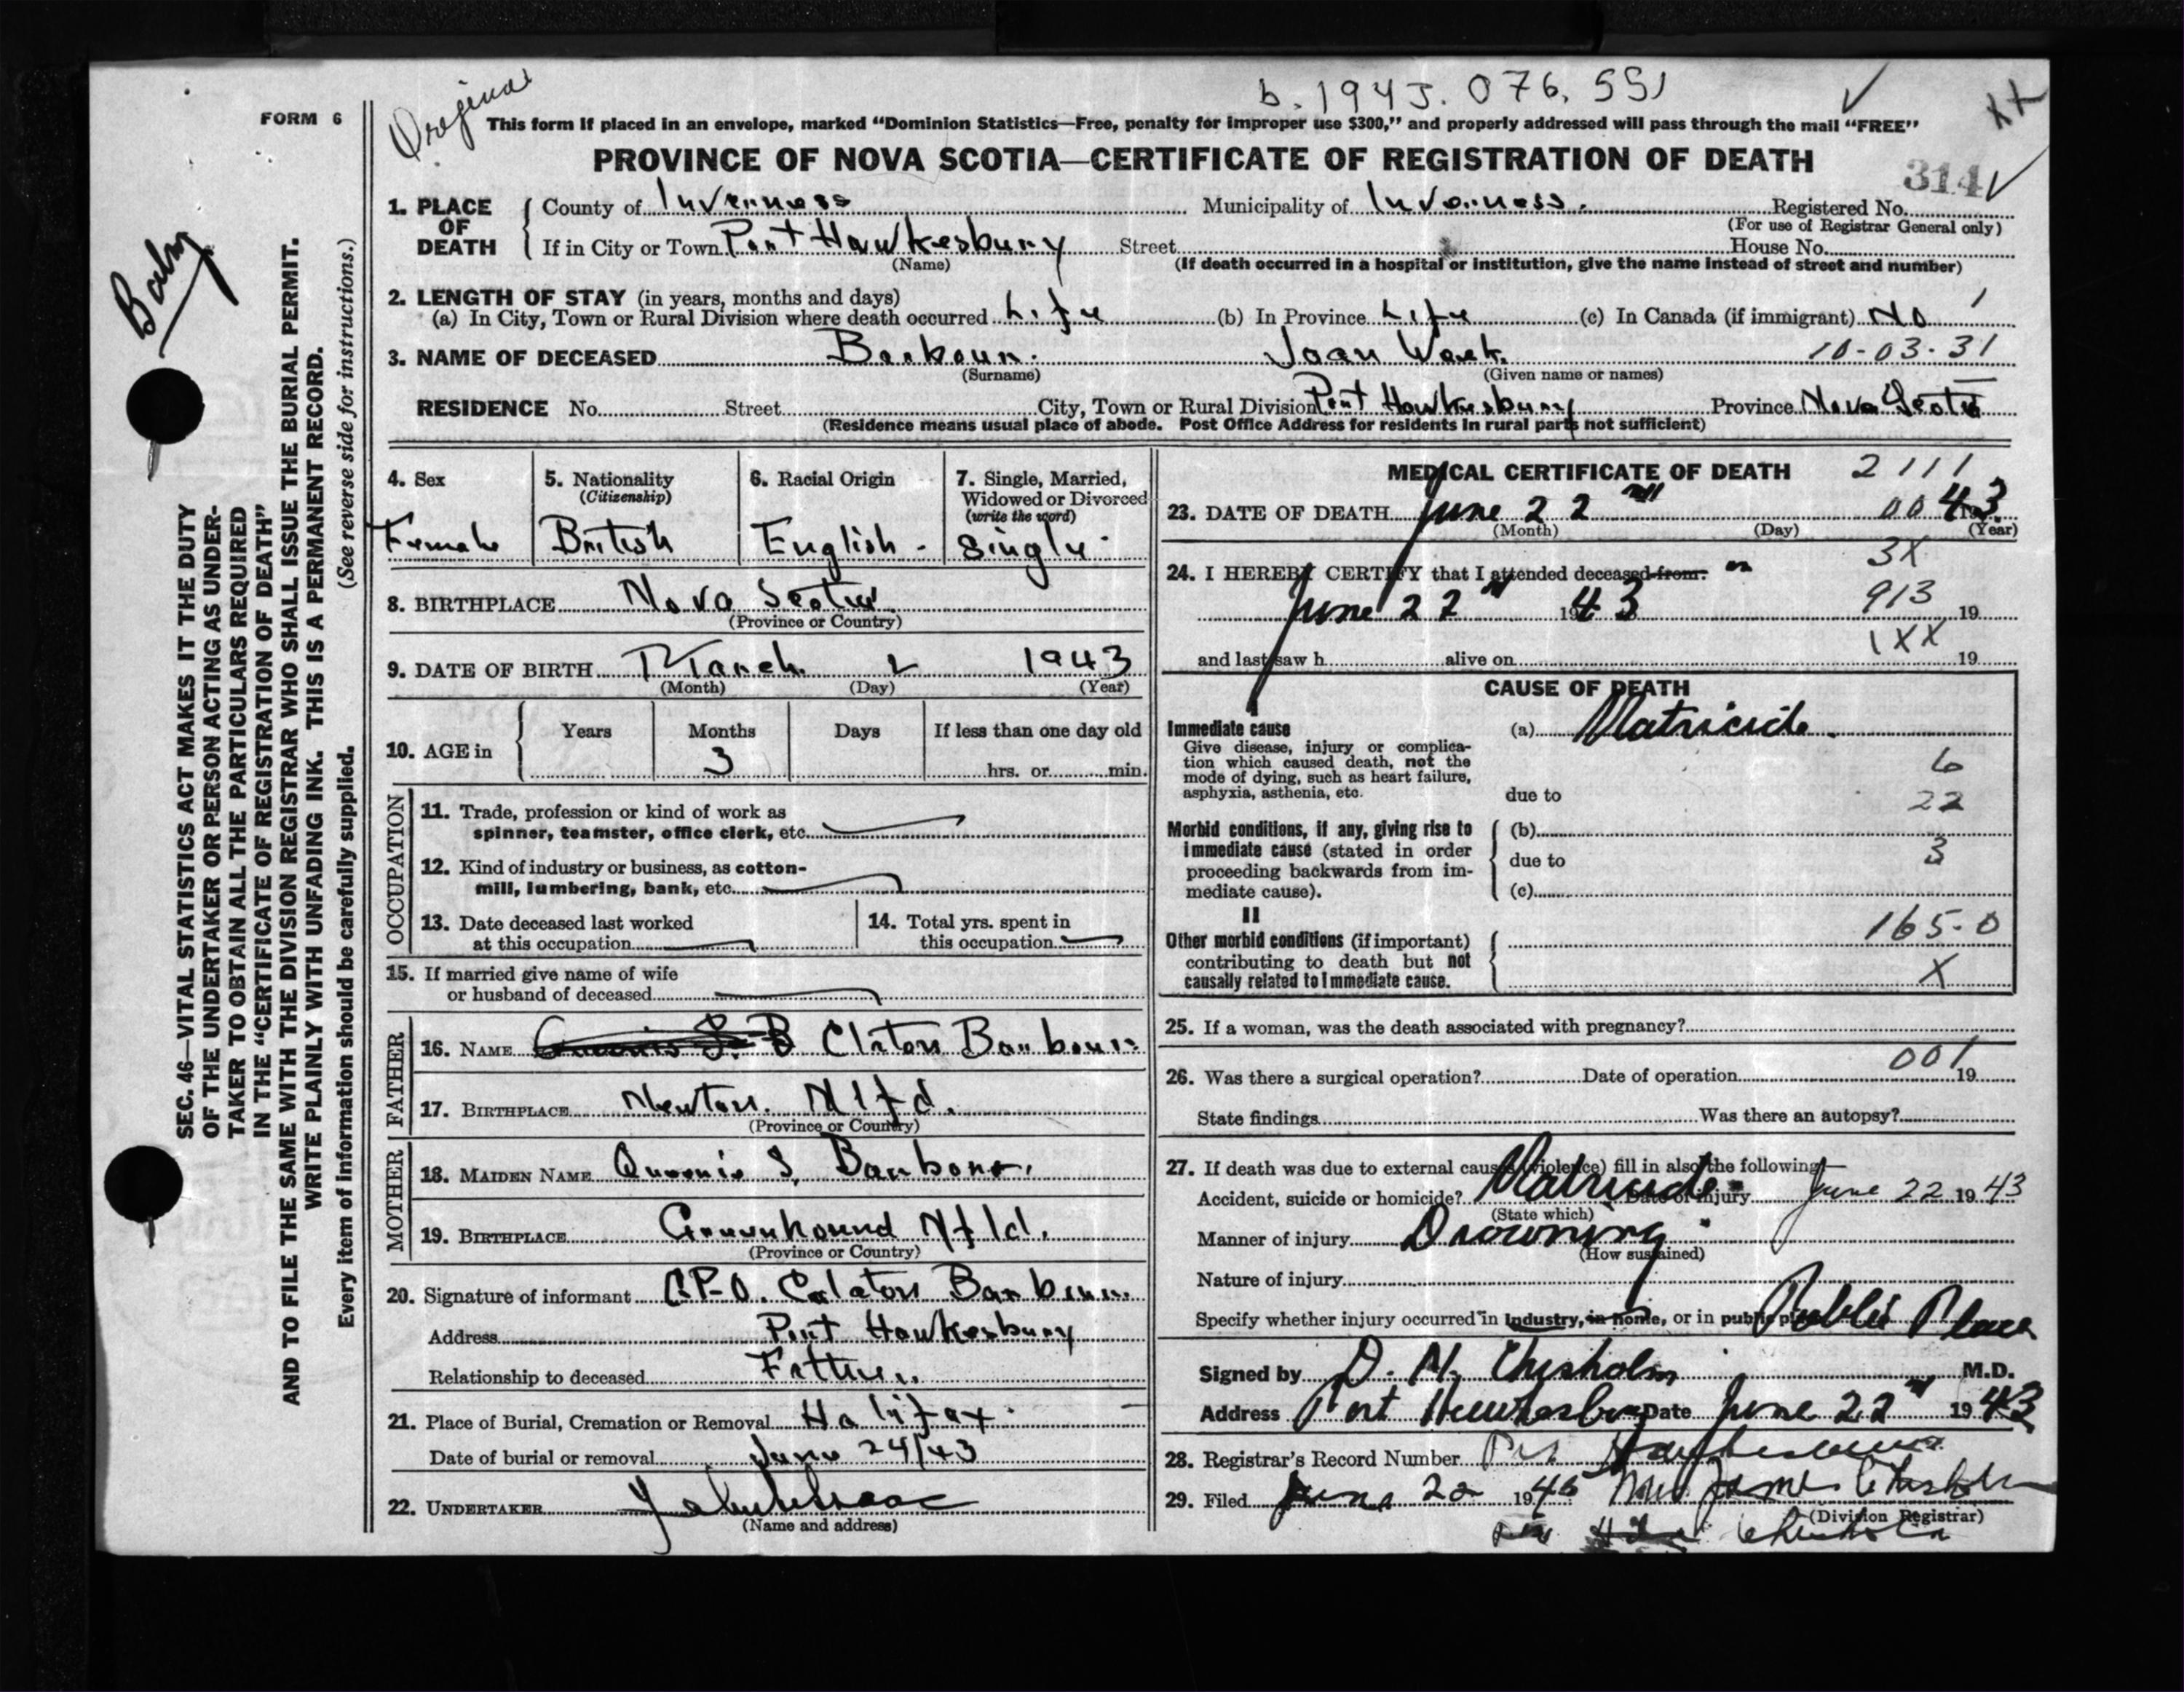 Original
b. 1943. 076. 551
FORM 6
This form if placed in an envelope, marked “Dominion Statistics—Free, penalty for improper use $300,” and properly addressed will pass through the mail “FREE”
PROVINCE OF NOVA SCOTIA—CERTIFICATE OF REGISTRATION OF DEATH
314
1. PLACE OF DEATH
County of Inverness Municipality of Inverness. Registered No.
(For use of Registrar General only)
If in City or Town Port Hawkesbury Street House No.
(Name) (If death occurred in a hospital or institution, give the name instead of street and number)
2. LENGTH OF STAY (in years, months and days)
(a) In City, Town or Rural Division where death occurred Life (b) In Province Life (c) In Canada (if immigrant) No
3. NAME OF DECEASED Joan 10-03-31
(Surname) (Given name or names)
RESIDENCE No. Street City, Town or Rural Division Port Hawkesbury Province Nova Scotia
(Residence means usual place of abode. Post Office Address for residents in rural parts not sufficient)
4. Sex
Female
5. Nationality
(Citizenship)
British
6. Racial Origin
English -
7. Single, Married,
Widowed or Divorced
(write the word)
Single
8. BIRTHPLACE Nova Scotia
(Province or Country)
9. DATE OF BIRTH March 2 1943
(Month) (Day) (Year)
10. AGE in
Years Months Days If less than one day old
3 hrs. or min.
OCCUPATION
11. Trade, profession or kind of work as
spinner, teamster, office clerk, etc.
12. Kind of industry or business, as cotton-
mill, lumbering, bank, etc.
13. Date deceased last worked
at this occupation
14. Total yrs. spent in
this occupation
15. If married give name of wife
or husband of deceased
FATHER
16. NAME Barbour
17. BIRTHPLACE Newton. Nfld.
(Province or Country)
MOTHER
18. MAIDEN NAME S. Barbour
19. BIRTHPLACE Nfld.
(Province or Country)
20. Signature of informant Barbour
Address Port Hawkesbury
Relationship to deceased Father
21. Place of Burial, Cremation or Removal Halifax
Date of burial or removal June 24/43
22. UNDERTAKER
(Name and address)
MEDICAL CERTIFICATE OF DEATH
2111
23. DATE OF DEATH June 22nd 00 43
(Month) (Day) (Year)
3X
24. I HEREBY CERTIFY that I attended deceased from: on
June 22nd 1943 913 19
1XX
and last saw h alive on 19
CAUSE OF DEATH
I
Immediate cause (a) Matricide.
Give disease, injury or complica-
tion which caused death, not the
mode of dying, such as heart failure,
asphyxia, asthenia, etc. due to
6
22
Morbid conditions, if any, giving rise to
immediate cause (stated in order
proceeding backwards from im-
mediate cause).
(b)
due to 3
(c)
II
Other morbid conditions (if important)
contributing to death but not
causally related to immediate cause.
165-0
X
25. If a woman, was the death associated with pregnancy?
001
26. Was there a surgical operation? Date of operation 19
State findings Was there an autopsy?
27. If death was due to external causes (violence) fill in also the following:—
Accident, suicide or homicide? Matricide Date of injury June 22 1943
(State which)
Manner of injury Drowning
(How sustained)
Nature of injury
Specify whether injury occurred in industry, in home, or in public place Public Place
Signed by D. Chisholm M.D.
Address Port Hawkesbury Date June 22nd 1943
28. Registrar's Record Number
29. Filed June 22 19 Mrs James Chisholm
(Division Registrar)
Chisholm
Baby
SEC. 46—VITAL STATISTICS ACT MAKES IT THE DUTY
OF THE UNDERTAKER OR PERSON ACTING AS UNDER-
TAKER TO OBTAIN ALL THE PARTICULARS REQUIRED
IN THE “CERTIFICATE OF REGISTRATION OF DEATH”
AND TO FILE THE SAME WITH THE DIVISION REGISTRAR WHO SHALL ISSUE THE BURIAL PERMIT.
WRITE PLAINLY WITH UNFADING INK. THIS IS A PERMANENT RECORD.
Every item of information should be carefully supplied. (See reverse side for instructions.)